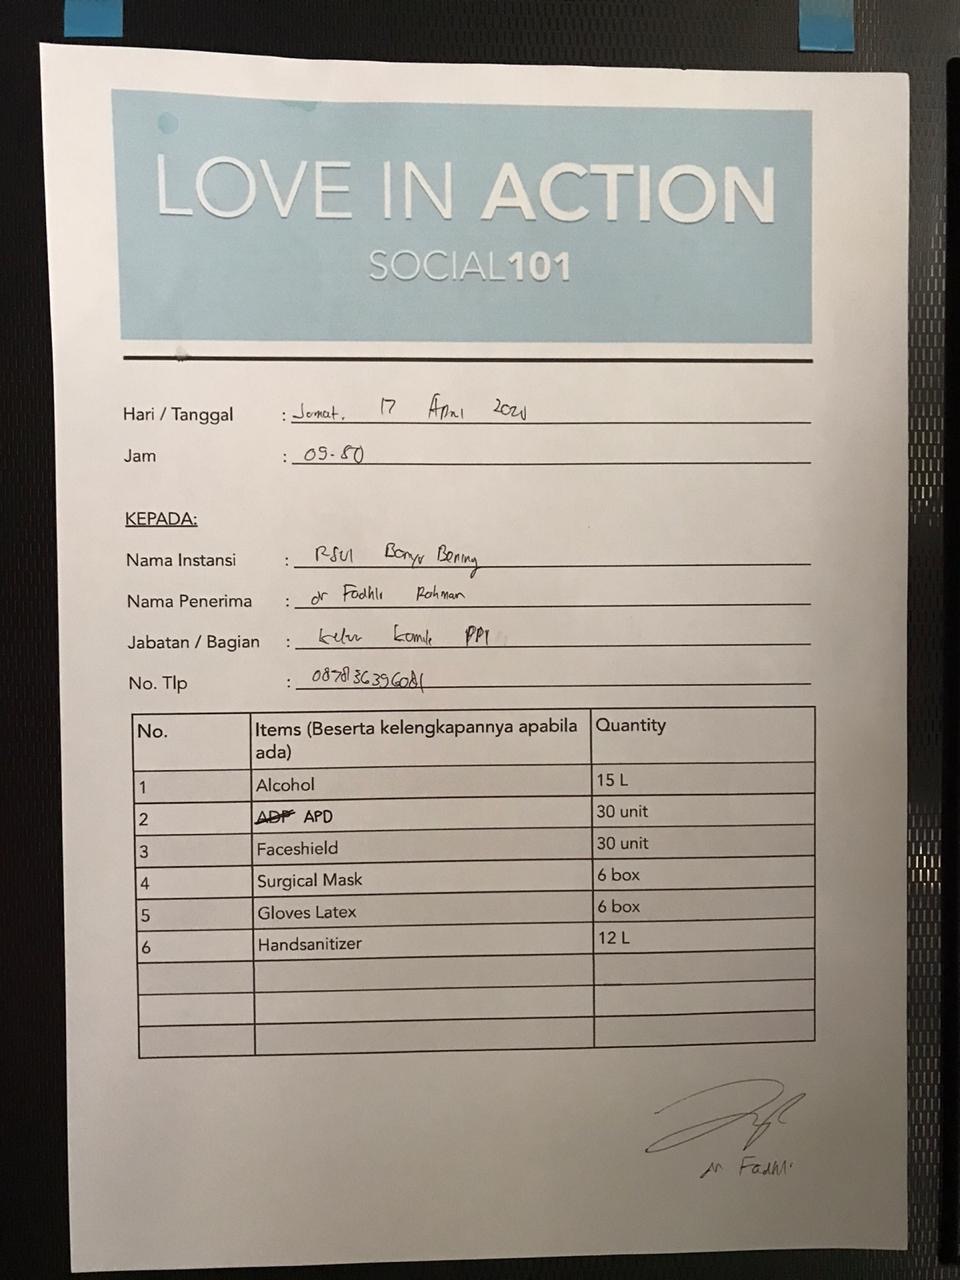 LOVE IN ACTION
SOCIAL101
Hari / Tanggal : Jumat, 17 April 2020
Jam : 09-50
KEPADA:
Nama Instansi : RSUI Banyu Bening
Nama Penerima : dr Fadhli Rahman
Jabatan / Bagian : Ketua Komite PPI
No. Tlp :
No. Items (Beserta kelengkapannya apabila Quantity
ada)
1 Alcohol 15 L
2 ADP APD 30 unit
3 Faceshield 30 unit
4 Surgical Mask 6 box
5 Gloves Latex 6 box
6 Handsanitizer 12 L
dr Fadhli